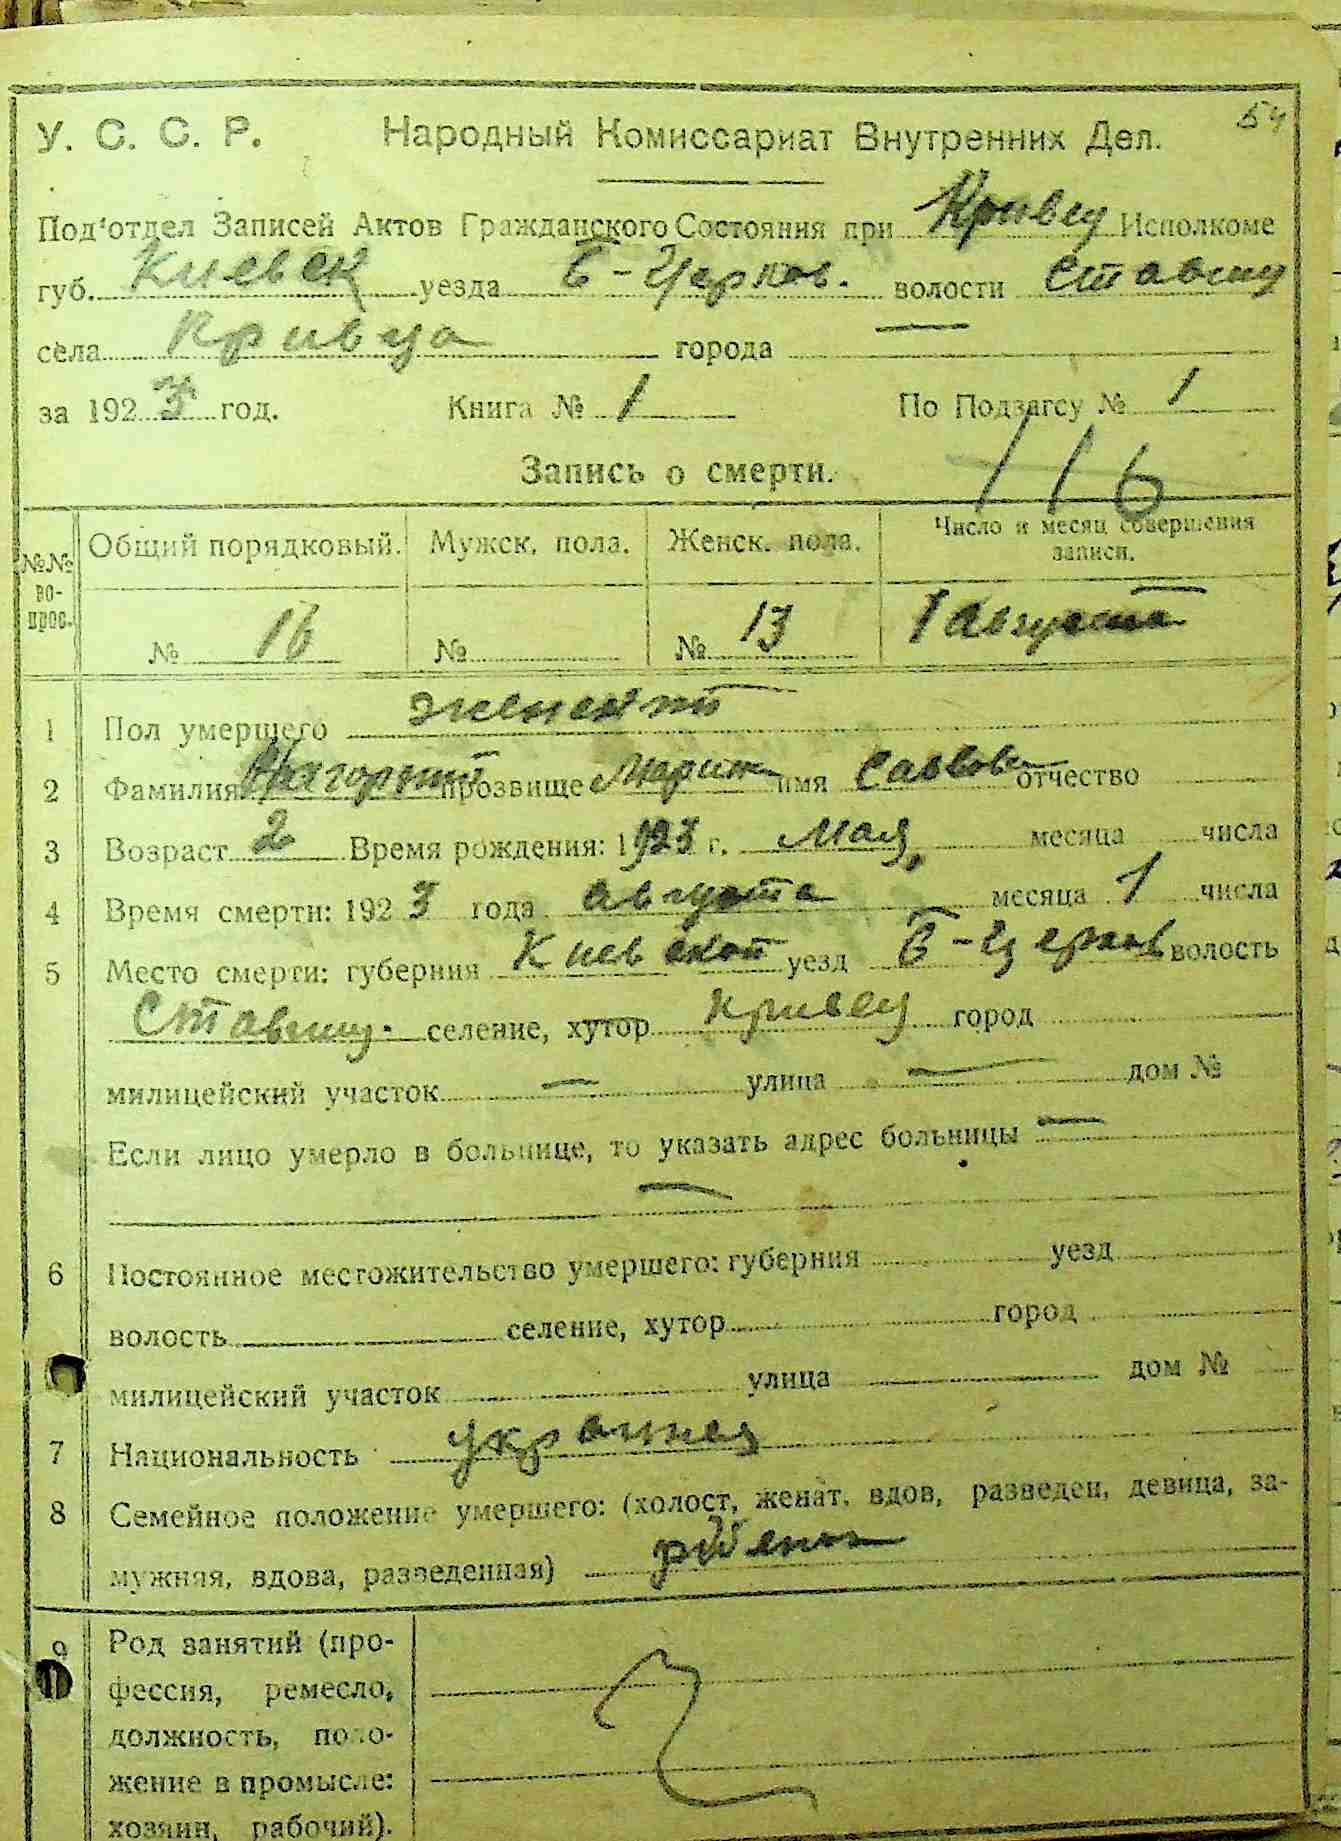 54
У. С. С. Р. Народный Комиссариат Внутренних Дел.
Под'отдел Записей Актов Гражданского Состояния при Кривец Исполкоме
губ. Киевск уезда Б-Церков. волости Ставищ
села Кривца города
за 1923 год. Книга № 1 По Подзагсу № 1
Запись о смерти. 116
№№ вопрос. Общий порядковый. Мужск. пола. Женск. пола. Число и месяц совершения записи.
№ 16 № № 13 1 августа
1 Пол умершего женский
2 Фамилия Нагорный прозвище Мария имя Саввова отчество
3 Возраст 2 Время рождения: 1923 г. Мая, месяца числа
4 Время смерти: 1923 года августа месяца 1 числа
5 Место смерти: губерния Киевской уезд Б-Церков волость
Ставищ. селение, хутор Кривец город
милицейский участок — улица — дом №
Если лицо умерло в больнице, то указать адрес больницы —
—
6 Постоянное местожительство умершего: губерния уезд
волость селение, хутор город
милицейский участок улица дом №
7 Национальность
8 Семейное положение умершего: (холост, женат, вдов, разведен, девица, за-
мужняя, вдова, разведенная)
9 Род занятий (про-
фессия, ремесло,
должность, поло-
жение в промысле:
хозяин, рабочий).